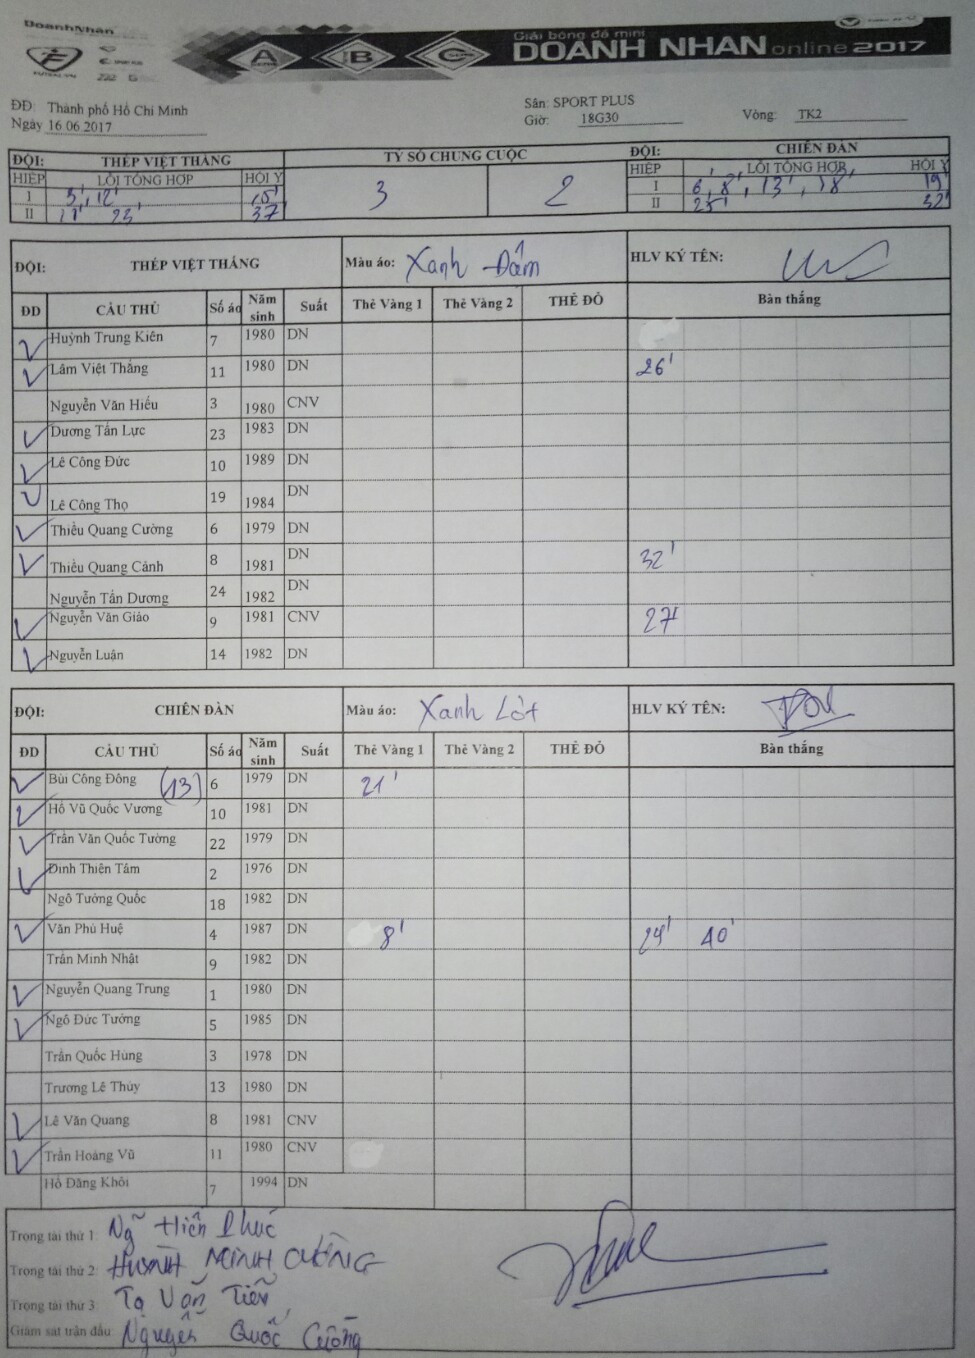 DoanhNhan
A B C
Giải bóng đá mini
DOANH NHAN online 2017
FUTSAL.VN
ĐĐ: Thành phố Hồ Chí Minh
Sân: SPORT PLUS
Ngày 16 06 2017
Giờ: 18G30
Vòng: TK2
ĐỘI: THÉP VIỆT THẮNG TỶ SỐ CHUNG CUỘC ĐỘI: CHIẾN ĐÀN
HIỆP LỖI TỔNG HỢP HỘI Ý 3 2 HIỆP LỖI TỔNG HỢP HỘI Ý
I 3', 12' 15' I 6', 8', 13', 18' 19'
II 11' 23' 37' II 25' 32'
ĐỘI: THÉP VIỆT THẮNG Màu áo: Xanh Đấm HLV KÝ TÊN:
ĐD CẦU THỦ Số áo Năm sinh Suất Thẻ Vàng 1 Thẻ Vàng 2 THẺ ĐỎ Bàn thắng
Huỳnh Trung Kiên 7 1980 DN
Lâm Việt Thắng 11 1980 DN 26'
Nguyễn Văn Hiếu 3 1980 CNV
Dương Tấn Lực 23 1983 DN
Lê Công Đức 10 1989 DN
Lê Công Thọ 19 1984 DN
Thiều Quang Cường 6 1979 DN
Thiều Quang Cảnh 8 1981 DN 32'
Nguyễn Tấn Dương 24 1982 DN
Nguyễn Văn Giảo 9 1981 CNV 27'
Nguyễn Luận 14 1982 DN
ĐỘI: CHIẾN ĐÀN Màu áo: Xanh Lợt HLV KÝ TÊN:
ĐD CẦU THỦ Số áo Năm sinh Suất Thẻ Vàng 1 Thẻ Vàng 2 THẺ ĐỎ Bàn thắng
Bùi Công Đông (13) 6 1979 DN 21'
Hồ Vũ Quốc Vương 10 1981 DN
Trần Văn Quốc Tường 22 1979 DN
Đinh Thiên Tâm 2 1976 DN
Ngô Tưởng Quốc 18 1982 DN
Văn Phú Huệ 4 1987 DN 8' 24' 40'
Trần Minh Nhật 9 1982 DN
Nguyễn Quang Trung 1 1980 DN
Ngô Đức Tưởng 5 1985 DN
Trần Quốc Hùng 3 1978 DN
Trương Lê Thủy 13 1980 DN
Lê Văn Quang 8 1981 CNV
Trần Hoàng Vũ 11 1980 CNV
Hồ Đăng Khôi 7 1994 DN
Trọng tài thứ 1: Ng Hiền Phúc
Trọng tài thứ 2: HUỲNH MINH CƯỜNG
Trọng tài thứ 3: Tạ Văn Tiến
Giám sát trận đấu: Nguyễn Quốc Cường